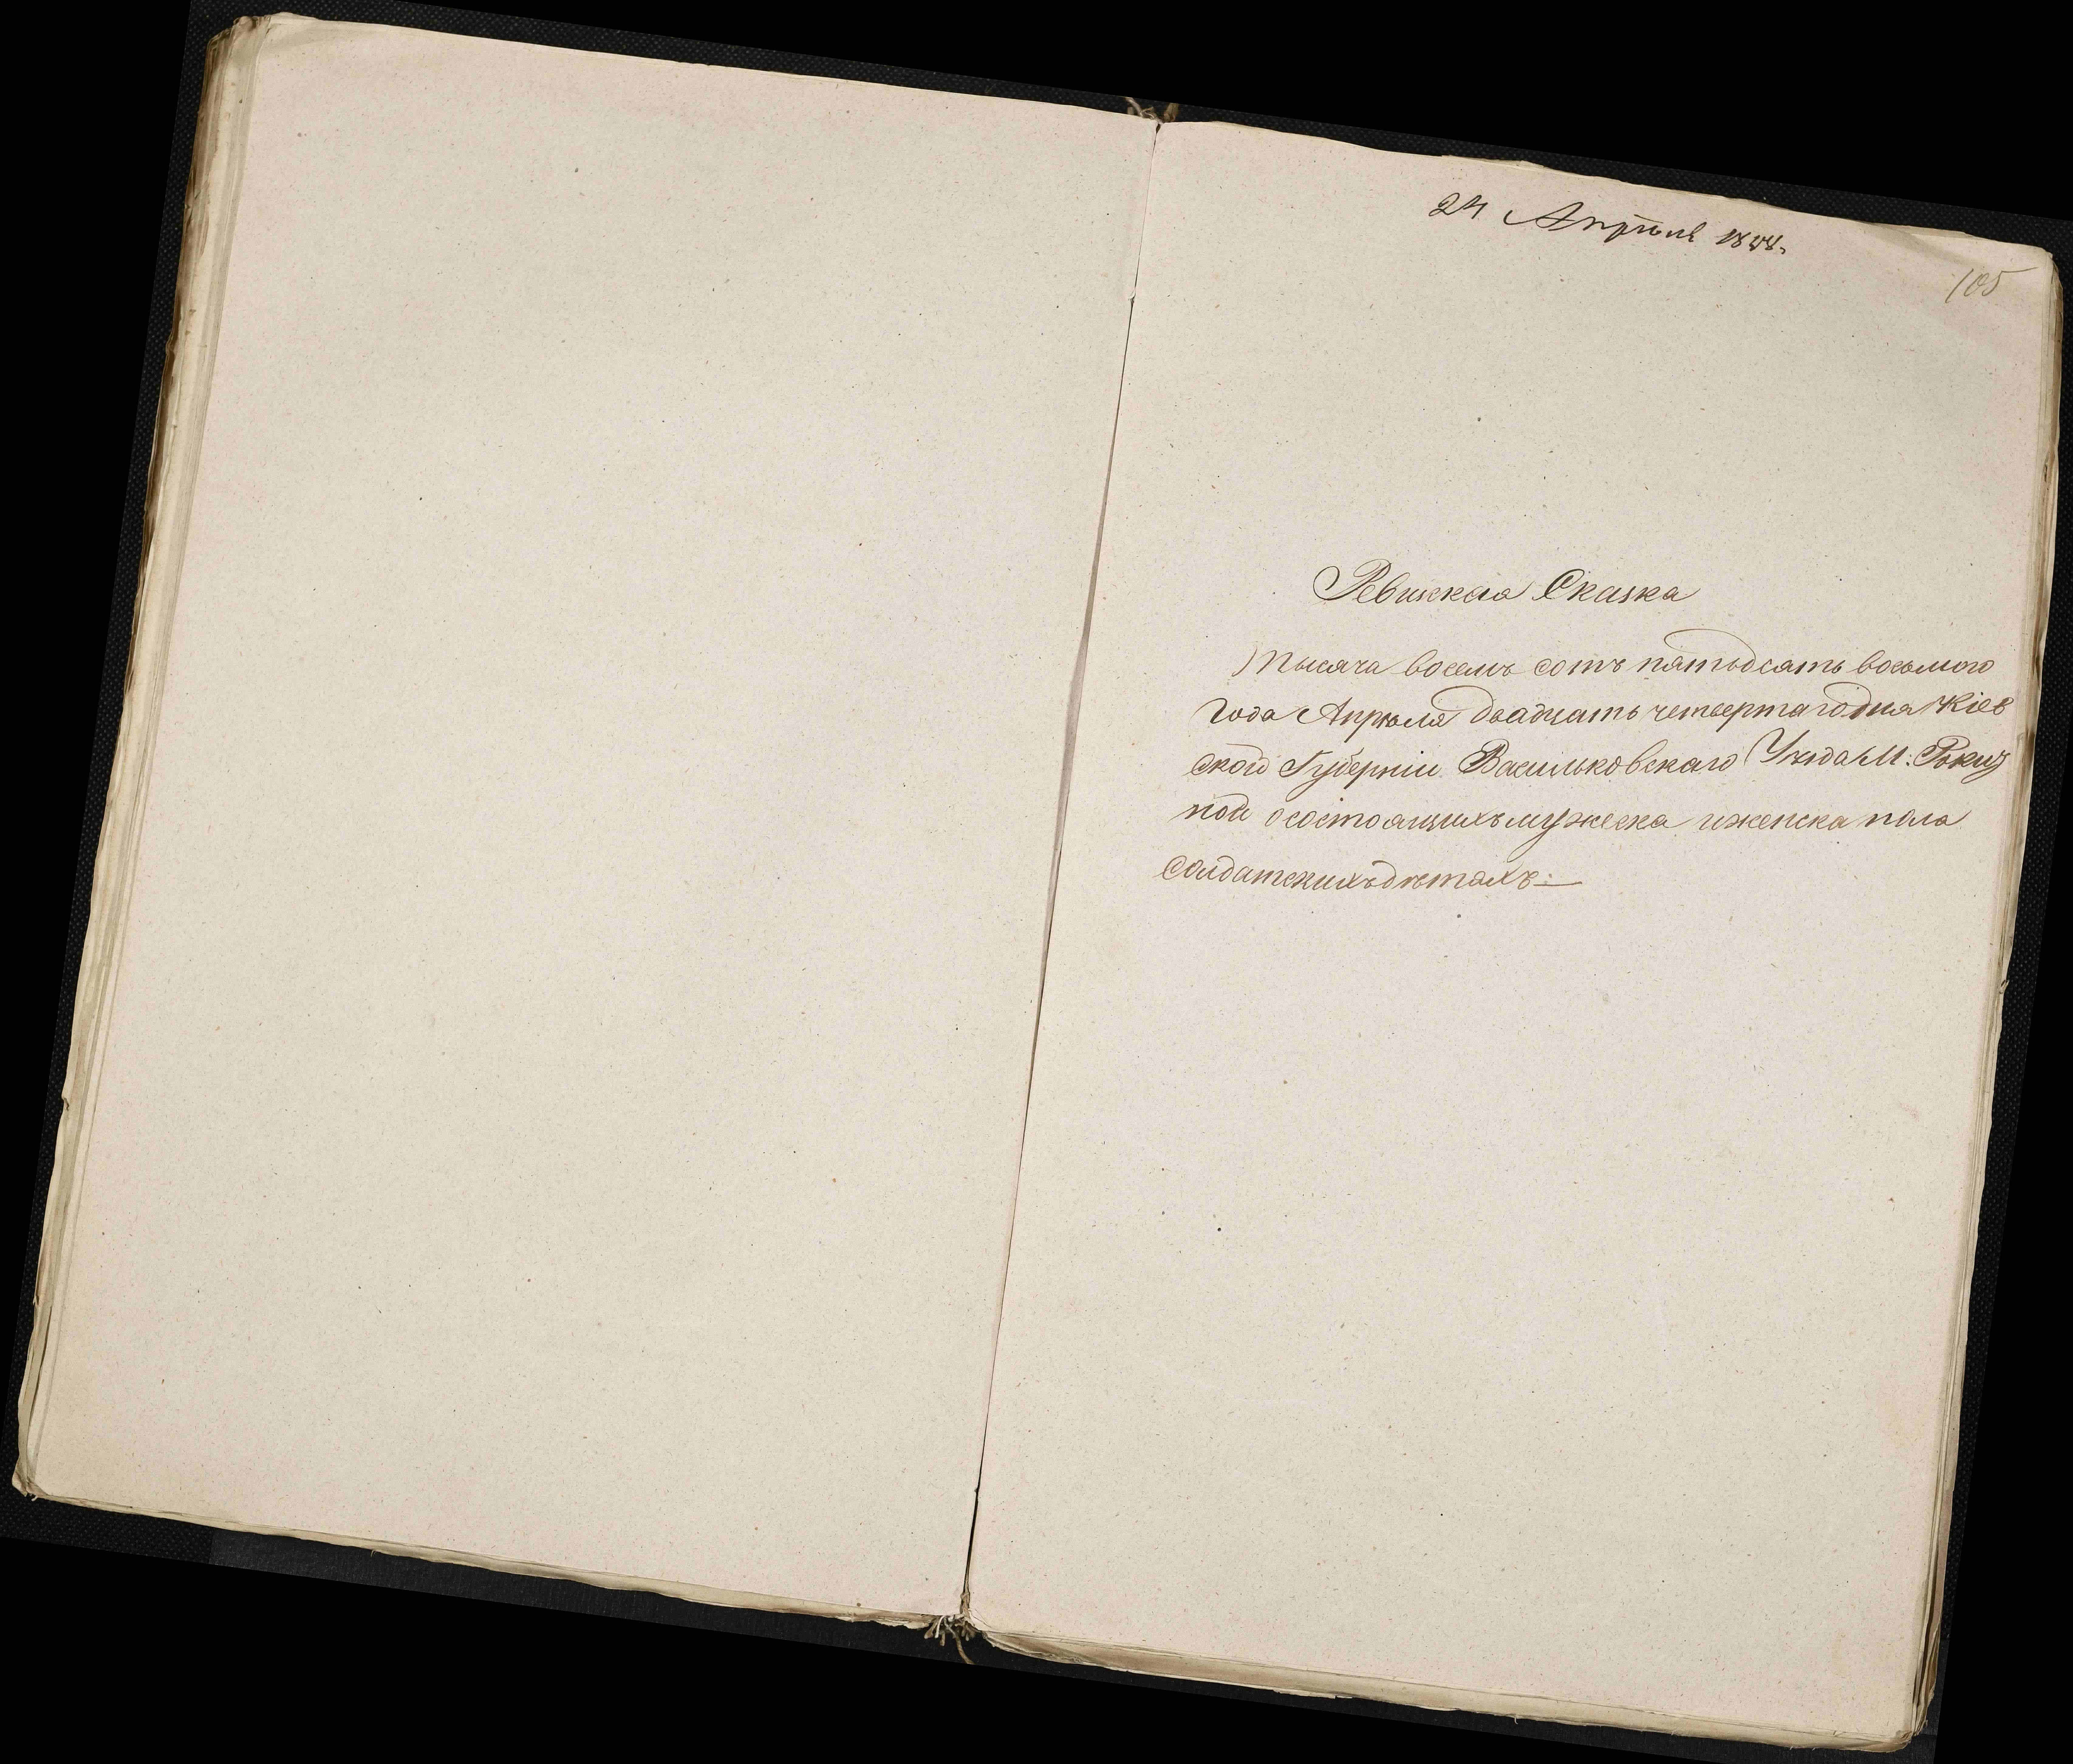 24 Апрѣля 1858.
105
Ревизская Сказка
Тысяча восемь сотъ пятьдсятъ восьмого
Года Апрѣля двадцать четвертаго дня Кіев
ской Губерніи Васильковскаго Уѣзда М: Рокит
ной о состоящихъ мужеска и женска пола
Солдатскихъ дѣтяхъ.—